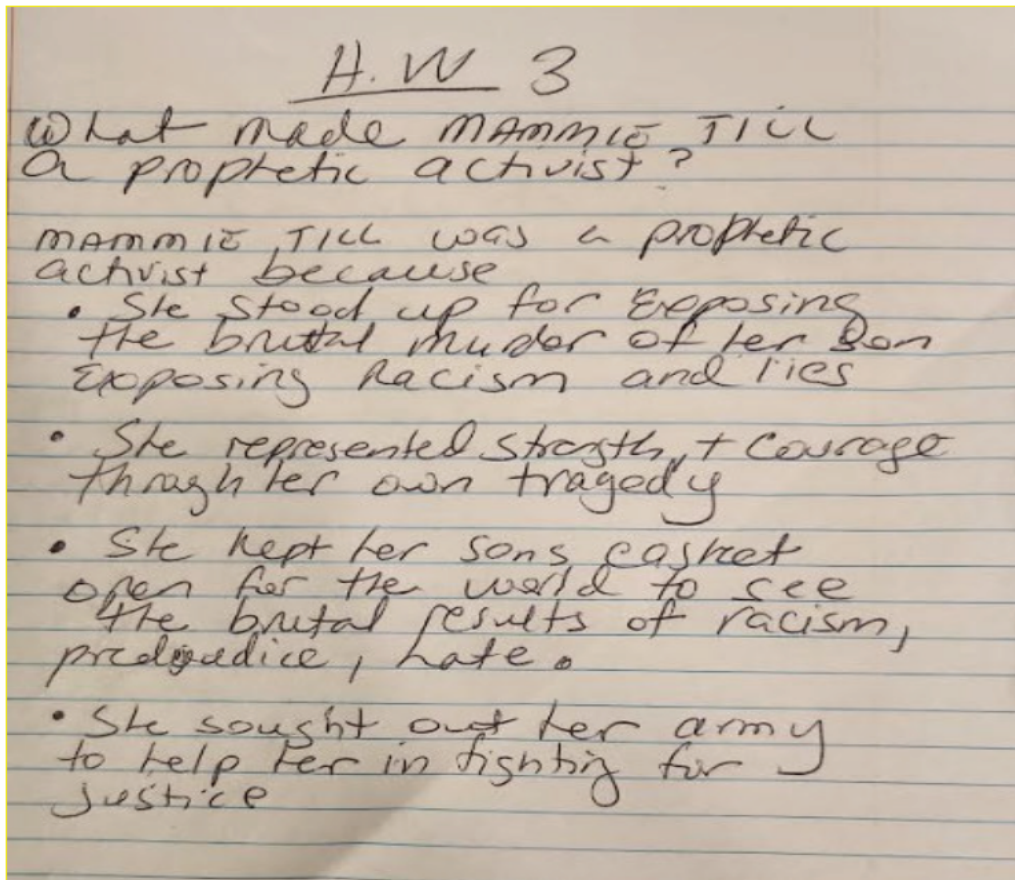 H.W 3
What made MAMMIE TILL
a prophetic activist?
MAMMIE TILL was a prophetic
activist because
• She stood up for Exposing
the brutal murder of her Son
Exposing Racism and lies
• She represented strength + Courage
through her own tragedy
• She kept her sons casket
open for the world to see
the brutal results of racism,
predjudice, hate.
• She sought out her army
to help her in fighting for
justice